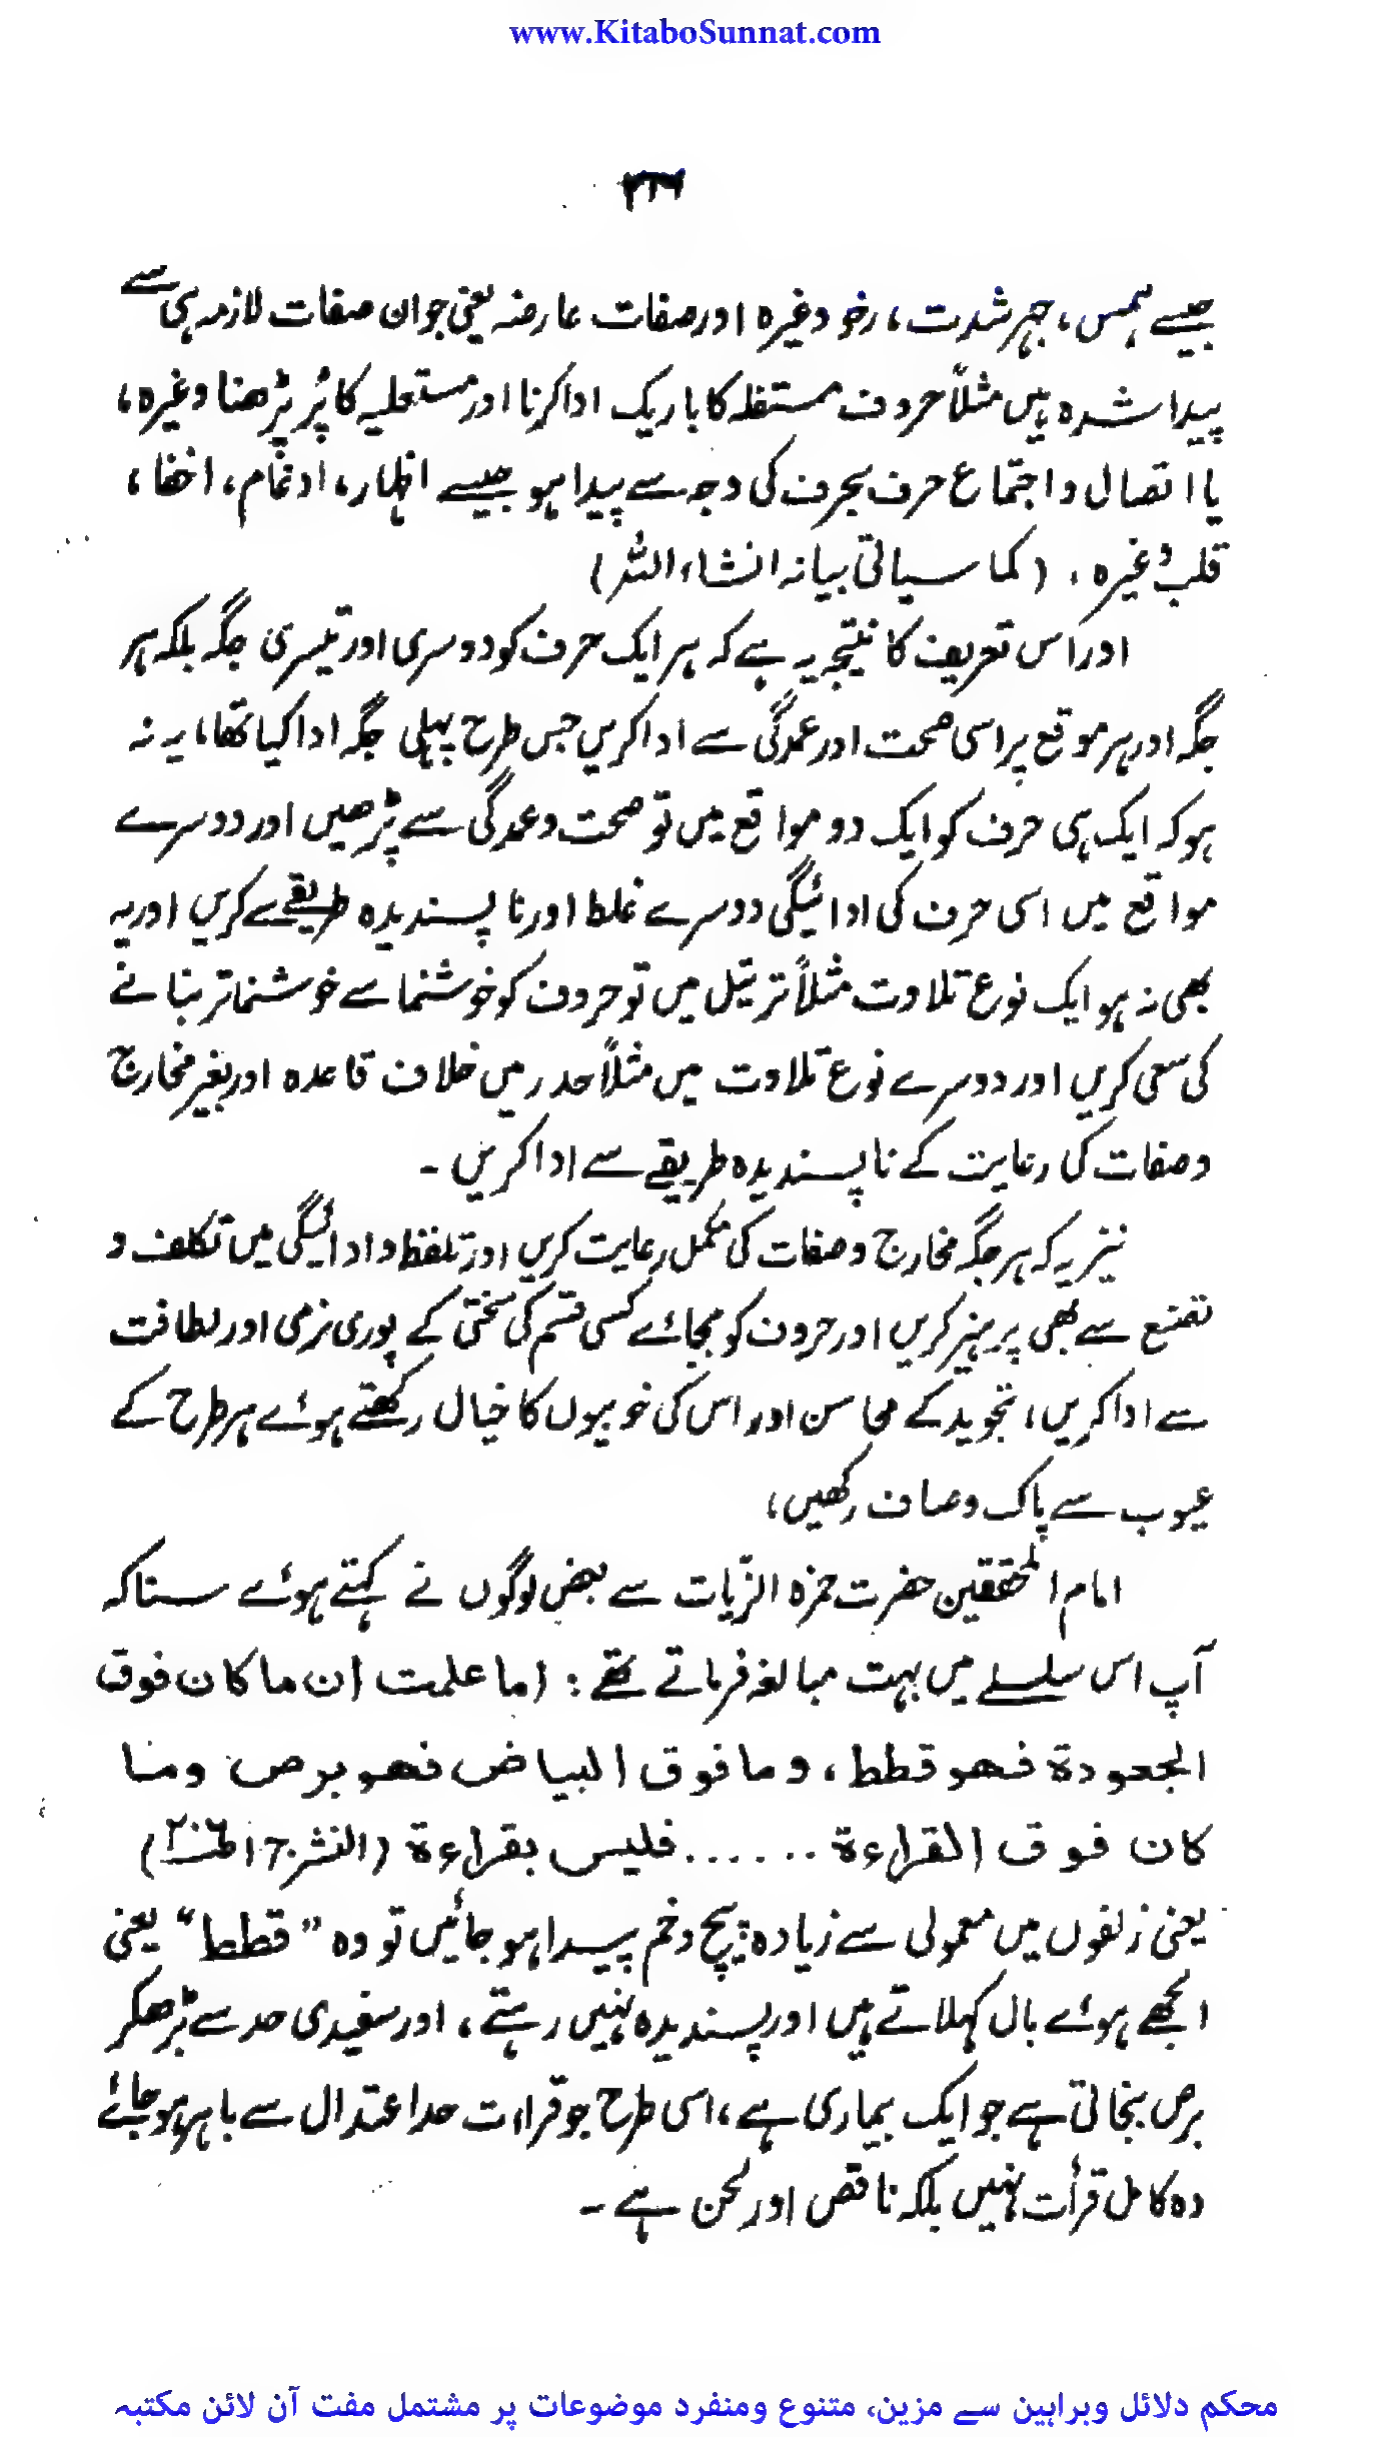 www.KitaboSunnat.com
جیسے ہمس، جہر شدت، رخو وغیرہ اور صفات عارضہ یعنی جو ان صفات لازمہ ہی سے
پیدا شدہ ہیں مثلاً حروف مستفلہ کا باریک ادا کرنا اور مستعلیہ کا پُر پڑھنا وغیرہ،
یا اتصال و اجتماع حرف بحرف کی وجہ سے پیدا ہو جیسے اظہار، ادغام، اخفا،
قلب وغیرہ، (کما سیاتی بیانہ انشاء اللہ)
اور اس تعریف کا نتیجہ یہ ہے کہ ہر ایک حرف کو دوسری اور تیسری جگہ بلکہ ہر
جگہ اور ہر موقع پر اسی صحت اور عمدگی سے ادا کریں جس طرح پہلی جگہ ادا کیا تھا، یہ نہ
ہو کہ ایک ہی حرف کو ایک دو مواقع میں تو صحت و عمدگی سے پڑھیں اور دوسرے
مواقع میں اسی حرف کی ادائیگی دوسرے غلط اور ناپسندیدہ طریقے سے کریں اور یہ
بھی نہ ہو ایک نوع تلاوت مثلاً ترتیل میں تو حروف کو خوشنما سے خوشنما تر بنانے
کی سعی کریں اور دوسرے نوع تلاوت میں مثلاً حدر میں خلاف قاعدہ اور بغیر مخارج
و صفات کی رعایت کے ناپسندیدہ طریقے سے ادا کریں ۔
نیز یہ کہ ہر جگہ مخارج و صفات کی مکمل رعایت کریں اور تلفظ و ادائیگی میں تکلف و
تصنع سے بھی پرہیز کریں اور حروف کو بجائے کسی قسم کی سختی کے پوری نرمی اور لطافت
سے ادا کریں، تجوید کے محاسن اور اس کی خوبیوں کا خیال رکھتے ہوئے ہر طرح کے
عیوب سے پاک و صاف رکھیں،
امام المحققین حضرت حمزہ الزّیات سے بعض لوگوں نے کہتے ہوئے سنا کہ
آپ اس سلسلے میں بہت مبالغہ فرماتے تھے : (اما علمت ان ما کان فوق
الجعودة فهو قطط، وما فوق البیاض فهو برص وما
کان فوق القراءة ...... فلیس بقراءة (النشر ج ۱ ص ۲۰۶)
یعنی زلفوں میں معمولی سے زیادہ پیچ و خم پیدا ہو جائیں تو وہ ”قطط“ یعنی
الجھے ہوئے بال کہلاتے ہیں اور پسندیدہ نہیں رہتے، اور سفیدی حد سے بڑھکر
برص بنجاتی ہے جو ایک بیماری ہے، اسی طرح جو قراءت حد اعتدال سے باہر ہو جائے
وہ کامل قرأت نہیں بلکہ ناقص اور لحن ہے ۔
محکم دلائل وبراہین سے مزین، متنوع ومنفرد موضوعات پر مشتمل مفت آن لائن مکتبہ